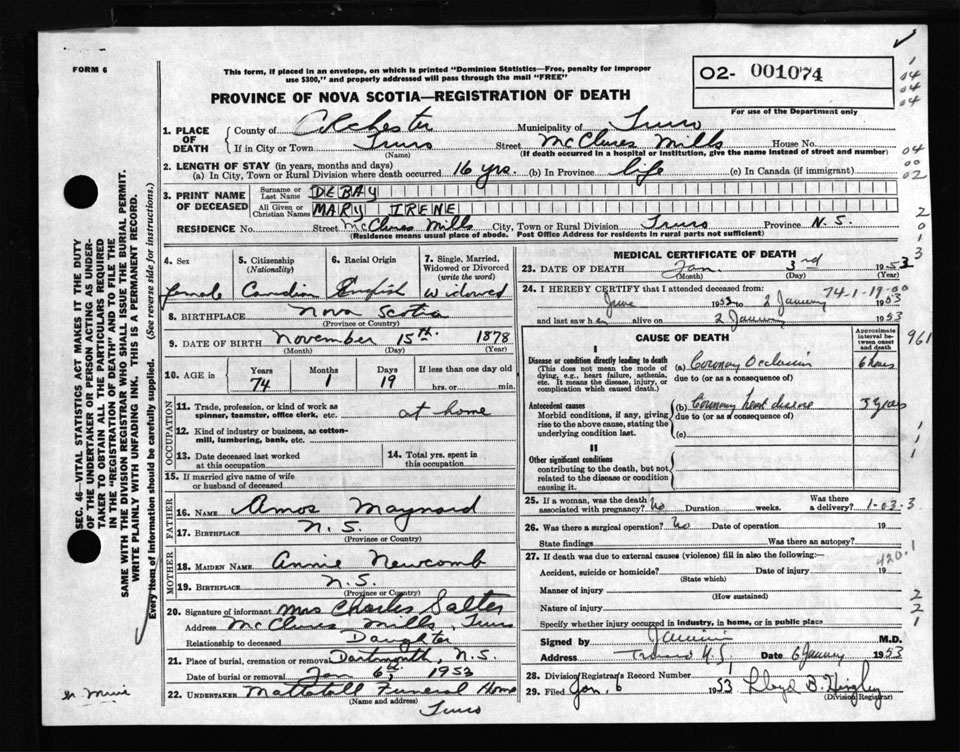 FORM 6
This form, if placed in an envelope, on which is printed "Dominion Statistics—Free, penalty for improper
use $300," and properly addressed will pass through the mail "FREE"
O2- 001074
For use of the Department only
PROVINCE OF NOVA SCOTIA—REGISTRATION OF DEATH
1. PLACE OF DEATH
County of Colchester Municipality of Truro
If in City or Town Truro Street McClures Mills House No.
(Name) (If death occurred in a hospital or institution, give the name instead of street and number)
2. LENGTH OF STAY (in years, months and days)
(a) In City, Town or Rural Division where death occurred 16 yrs. (b) In Province life (c) In Canada (if immigrant)
3. PRINT NAME OF DECEASED
Surname or Last Name DEBAY
All Given or Christian Names MARY IRENE
RESIDENCE No. Street McClures Mills City, Town or Rural Division Truro Province N.S.
(Residence means usual place of abode. Post Office Address for residents in rural parts not sufficient)
4. Sex 5. Citizenship (Nationality) 6. Racial Origin 7. Single, Married, Widowed or Divorced (write the word)
female Canadian English Widowed
8. BIRTHPLACE Nova Scotia
(Province or Country)
9. DATE OF BIRTH November 15th 1878
(Month) (Day) (Year)
10. AGE in Years Months Days If less than one day old
74 1 19 hrs. or min.
OCCUPATION
11. Trade, profession, or kind of work as spinner, teamster, office clerk, etc. at home
12. Kind of industry or business, as cotton-mill, lumbering, bank, etc.
13. Date deceased last worked at this occupation
14. Total yrs. spent in this occupation
15. If married give name of wife or husband of deceased
FATHER
16. NAME Amos Maynard
17. BIRTHPLACE N.S.
(Province or Country)
MOTHER
18. MAIDEN NAME Annie Newcomb
19. BIRTHPLACE N.S.
(Province or Country)
20. Signature of informant Mrs Charles Salter
Address McClures Mills, Truro
Relationship to deceased Daughter
21. Place of burial, cremation or removal Dartmouth, N.S.
Date of burial or removal Jan 6th 1953
22. UNDERTAKER Mattatall Funeral Home
(Name and address)
Truro
MEDICAL CERTIFICATE OF DEATH
23. DATE OF DEATH Jan. 3rd 1953
(Month) (Day) (Year)
74-1-19-00
24. I HEREBY CERTIFY that I attended deceased from:
June 1952 to 2 January 1953
and last saw her alive on 2 January 1953
CAUSE OF DEATH
Approximate interval between onset and death
961
I
Disease or condition directly leading to death
(This does not mean the mode of dying, e.g., heart failure, asthenia, etc. It means the disease, injury, or complication which caused death.)
(a) Coronary Occlusion 6 hours
due to (or as a consequence of)
Antecedent causes
Morbid conditions, if any, giving rise to the above cause, stating the underlying condition last.
(b) Coronary heart disease 5 years
due to (or as a consequence of)
(c)
II
Other significant conditions
contributing to the death, but not related to the disease or condition causing it.
25. If a woman, was the death associated with pregnancy? No Duration weeks. Was there a delivery? 1-03-3
26. Was there a surgical operation? No Date of operation 19
State findings Was there an autopsy?
27. If death was due to external causes (violence) fill in also the following:
420.1
Accident, suicide or homicide? Date of injury 19
(State which)
Manner of injury
(How sustained)
Nature of injury
Specify whether injury occurred in industry, in home, or in public place
Signed by M.D.
Address Truro N.S. Date 6 January 1953
28. Division Registrar's Record Number 1
29. Filed Jan. 6 1953 Lloyd B.
(Division Registrar)
SEC. 46—VITAL STATISTICS ACT MAKES IT THE DUTY
OF THE UNDERTAKER OR PERSON ACTING AS UNDER-
TAKER TO OBTAIN ALL THE PARTICULARS REQUIRED
IN THE "REGISTRATION OF DEATH" AND TO FILE THE
SAME WITH THE DIVISION REGISTRAR WHO SHALL ISSUE THE BURIAL PERMIT.
WRITE PLAINLY WITH UNFADING INK. THIS IS A PERMANENT RECORD.
Every item of information should be carefully supplied. (See reverse side for instructions.)